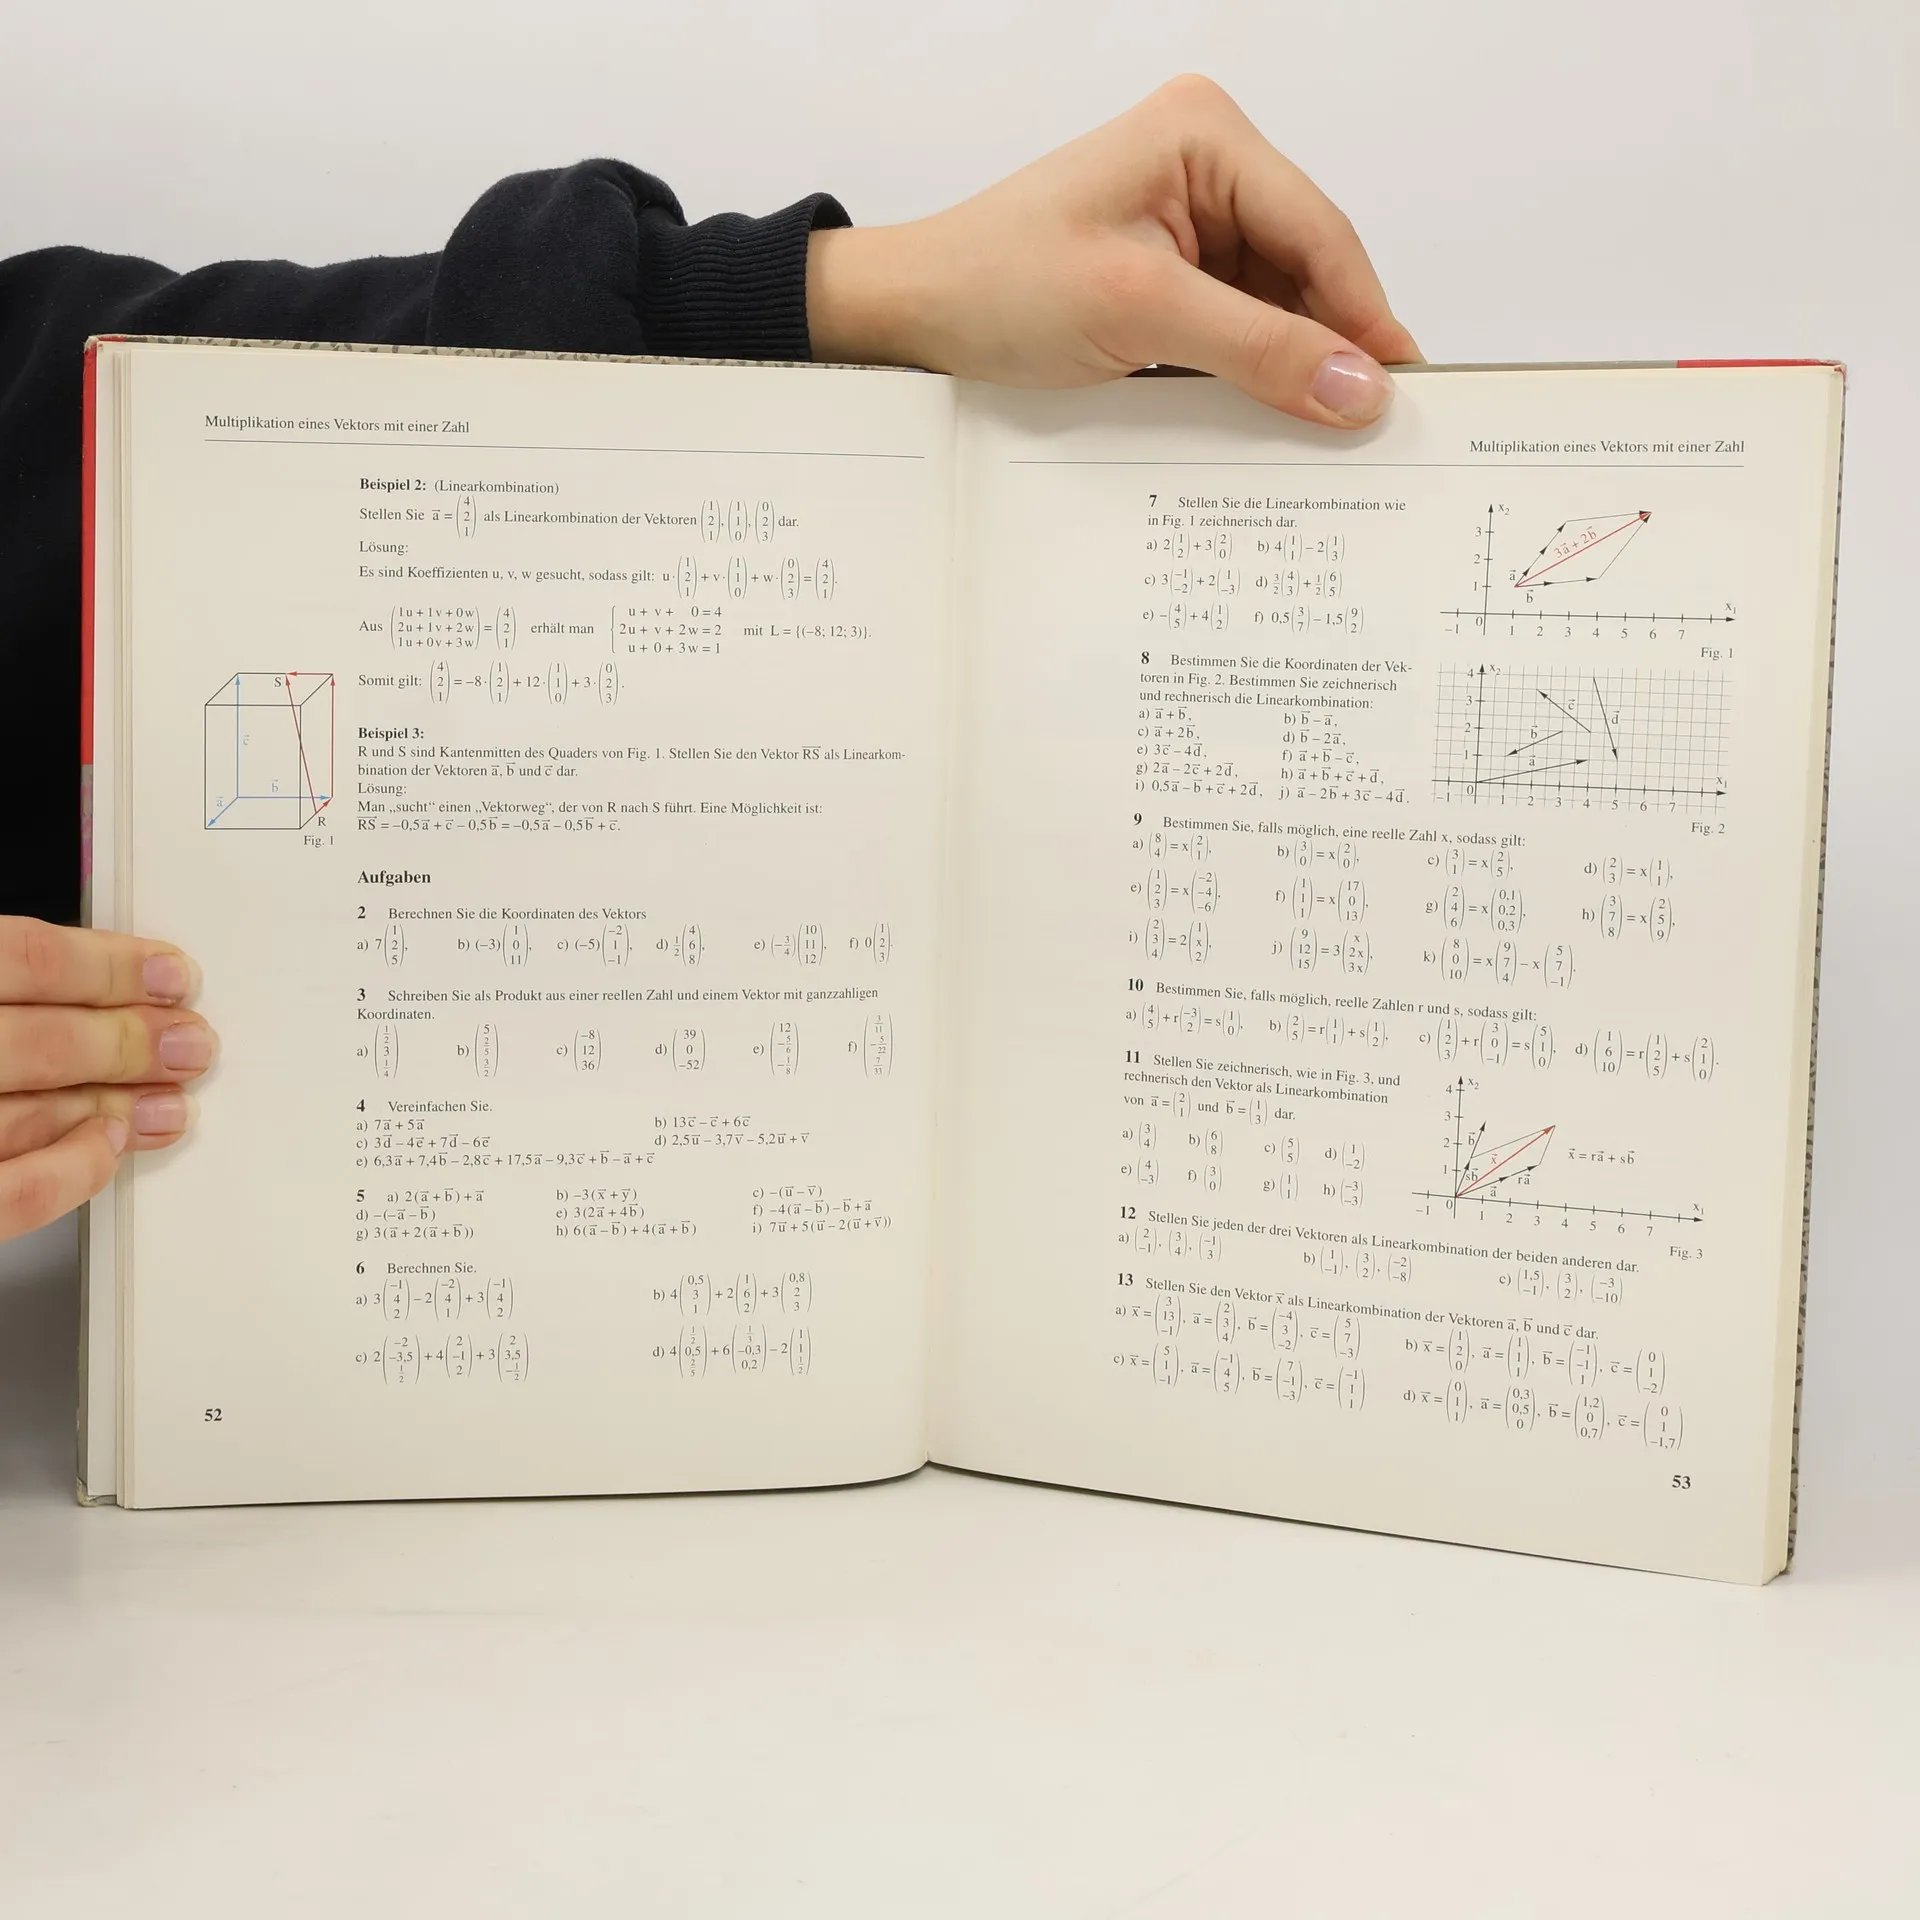 Multiplikation eines Vektors mit einer Zahl
Beispiel 2: (Linearkombination)
Stellen Sie a⃗ = (4 2 1) als Linearkombination der Vektoren (1 2 1), (1 1 0), (0 2 3) dar.
Lösung:
Es sind Koeffizienten u, v, w gesucht, sodass gilt: u·(1 2 1) + v·(1 1 0) + w·(0 2 3) = (4 2 1).
Aus (1u+1v+0w 2u+1v+2w 1u+0v+3w) = (4 2 1) erhält man { u + v + 0 = 4 2u + v + 2w = 2 u + 0 + 3w = 1 mit L = {(−8; 12; 3)}.
Somit gilt: (4 2 1) = −8·(1 2 1) + 12·(1 1 0) + 3·(0 2 3).
Beispiel 3:
R und S sind Kantenmitten des Quaders von Fig. 1. Stellen Sie den Vektor RS⃗ als Linearkom-
bination der Vektoren a⃗, b⃗ und c⃗ dar.
Lösung:
Man „sucht“ einen „Vektorweg“, der von R nach S führt. Eine Möglichkeit ist:
RS⃗ = −0,5a⃗ + c⃗ − 0,5b⃗ = −0,5a⃗ − 0,5b⃗ + c⃗.
S
c⃗
b⃗
a⃗
R
Fig. 1
Aufgaben
2 Berechnen Sie die Koordinaten des Vektors
a) 7(1 2 5), b) (−3)(1 0 11), c) (−5)(−2 1 −1), d) 1/2(4 6 8), e) (−3/4)(10 11 12), f) 0(1 2 3).
3 Schreiben Sie als Produkt aus einer reellen Zahl und einem Vektor mit ganzzahligen
Koordinaten.
a) (1/2 3 1/4) b) (5 2/5 3/2) c) (−8 12 36) d) (39 0 −52) e) (12 −5/6 −1/8) f) (3/11 −5/22 7/33)
4 Vereinfachen Sie.
a) 7a⃗ + 5a⃗ b) 13c⃗ − c⃗ + 6c⃗
c) 3d⃗ − 4e⃗ + 7d⃗ − 6e⃗ d) 2,5u⃗ − 3,7v⃗ − 5,2u⃗ + v⃗
e) 6,3a⃗ + 7,4b⃗ − 2,8c⃗ + 17,5a⃗ − 9,3c⃗ + b⃗ − a⃗ + c⃗
5 a) 2(a⃗ + b⃗) + a⃗ b) −3(x⃗ + y⃗) c) −(u⃗ − v⃗)
d) −(−a⃗ − b⃗) e) 3(2a⃗ + 4b⃗) f) −4(a⃗ − b⃗) − b⃗ + a⃗
g) 3(a⃗ + 2(a⃗ + b⃗)) h) 6(a⃗ − b⃗) + 4(a⃗ + b⃗) i) 7u⃗ + 5(u⃗ − 2(u⃗ + v⃗))
6 Berechnen Sie.
a) 3(−1 4 2) − 2(−2 4 1) + 3(−1 4 2) b) 4(0,5 3 1) + 2(1 6 2) + 3(0,8 2 3)
c) 2(−2 −3,5 1/2) + 4(2 −1 2) + 3(2 3,5 −1/2) d) 4(1/2 0,5 2/5) + 6(1/3 −0,3 0,2) − 2(1 1 1/2)
52
Multiplikation eines Vektors mit einer Zahl
7 Stellen Sie die Linearkombination wie
in Fig. 1 zeichnerisch dar.
a) 2(1 2) + 3(2 0) b) 4(1 1) − 2(1 3)
c) 3(−1 −2) + 2(1 −3) d) 3/2(4 3) + 1/2(6 5)
e) −(4 5) + 4(1 2) f) 0,5(3 7) − 1,5(9 2)
x₂
3
2
1
3a⃗ + 2b⃗
a⃗
b⃗
x₁
−1 0 1 2 3 4 5 6 7
Fig. 1
8 Bestimmen Sie die Koordinaten der Vek-
toren in Fig. 2. Bestimmen Sie zeichnerisch
und rechnerisch die Linearkombination:
a) a⃗ + b⃗, b) b⃗ − a⃗,
c) a⃗ + 2b⃗, d) b⃗ − 2a⃗,
e) 3c⃗ − 4d⃗, f) a⃗ + b⃗ − c⃗,
g) 2a⃗ − 2c⃗ + 2d⃗, h) a⃗ + b⃗ + c⃗ + d⃗,
i) 0,5a⃗ − b⃗ + c⃗ + 2d⃗, j) a⃗ − 2b⃗ + 3c⃗ − 4d⃗.
4 x₂
3
2
1
c⃗
d⃗
b⃗
a⃗
x₁
−1 0 1 2 3 4 5 6 7
Fig. 2
9 Bestimmen Sie, falls möglich, eine reelle Zahl x, sodass gilt:
a) (8 4) = x(2 1), b) (3 0) = x(2 0), c) (3 1) = x(2 5), d) (2 3) = x(1 1),
e) (1 2 3) = x(−2 −4 −6), f) (1 1 1) = x(17 0 13), g) (2 4 6) = x(0,1 0,2 0,3), h) (3 7 8) = x(2 5 9),
i) (2 3 4) = 2(1 x 2), j) (9 12 15) = 3(x 2x 3x), k) (8 0 10) = x(9 7 4) − x(5 7 −1).
10 Bestimmen Sie, falls möglich, reelle Zahlen r und s, sodass gilt:
a) (4 5) + r(−3 2) = s(1 0), b) (2 5) = r(1 1) + s(1 2), c) (1 2 3) + r(3 0 −1) = s(5 1 0), d) (1 6 10) = r(1 2 5) + s(2 1 0).
11 Stellen Sie zeichnerisch, wie in Fig. 3, und
rechnerisch den Vektor als Linearkombination
von a⃗ = (2 1) und b⃗ = (1 3) dar.
a) (3 4) b) (6 8) c) (5 5) d) (1 −2)
e) (4 −3) f) (3 0) g) (1 1) h) (−3 −3)
4 x₂
3
2
1
b⃗
x⃗
sb⃗
a⃗
ra⃗
x⃗ = ra⃗ + sb⃗
x₁
−1 0 1 2 3 4 5 6 7
Fig. 3
12 Stellen Sie jeden der drei Vektoren als Linearkombination der beiden anderen dar.
a) (2 −1), (3 4), (−1 3) b) (1 −1), (3 2), (−2 −8) c) (1,5 −1), (3 2), (−3 −10)
13 Stellen Sie den Vektor x⃗ als Linearkombination der Vektoren a⃗, b⃗ und c⃗ dar.
a) x⃗ = (3 13 −1), a⃗ = (2 3 4), b⃗ = (−4 3 −2), c⃗ = (5 7 −3) b) x⃗ = (1 2 0), a⃗ = (1 1 1), b⃗ = (−1 −1 1), c⃗ = (0 1 −2)
c) x⃗ = (5 1 −1), a⃗ = (−1 4 5), b⃗ = (7 −1 −3), c⃗ = (−1 1 1) d) x⃗ = (0 1 1), a⃗ = (0,3 0,5 0), b⃗ = (1,2 0 0,7), c⃗ = (0 1 −1,7)
53